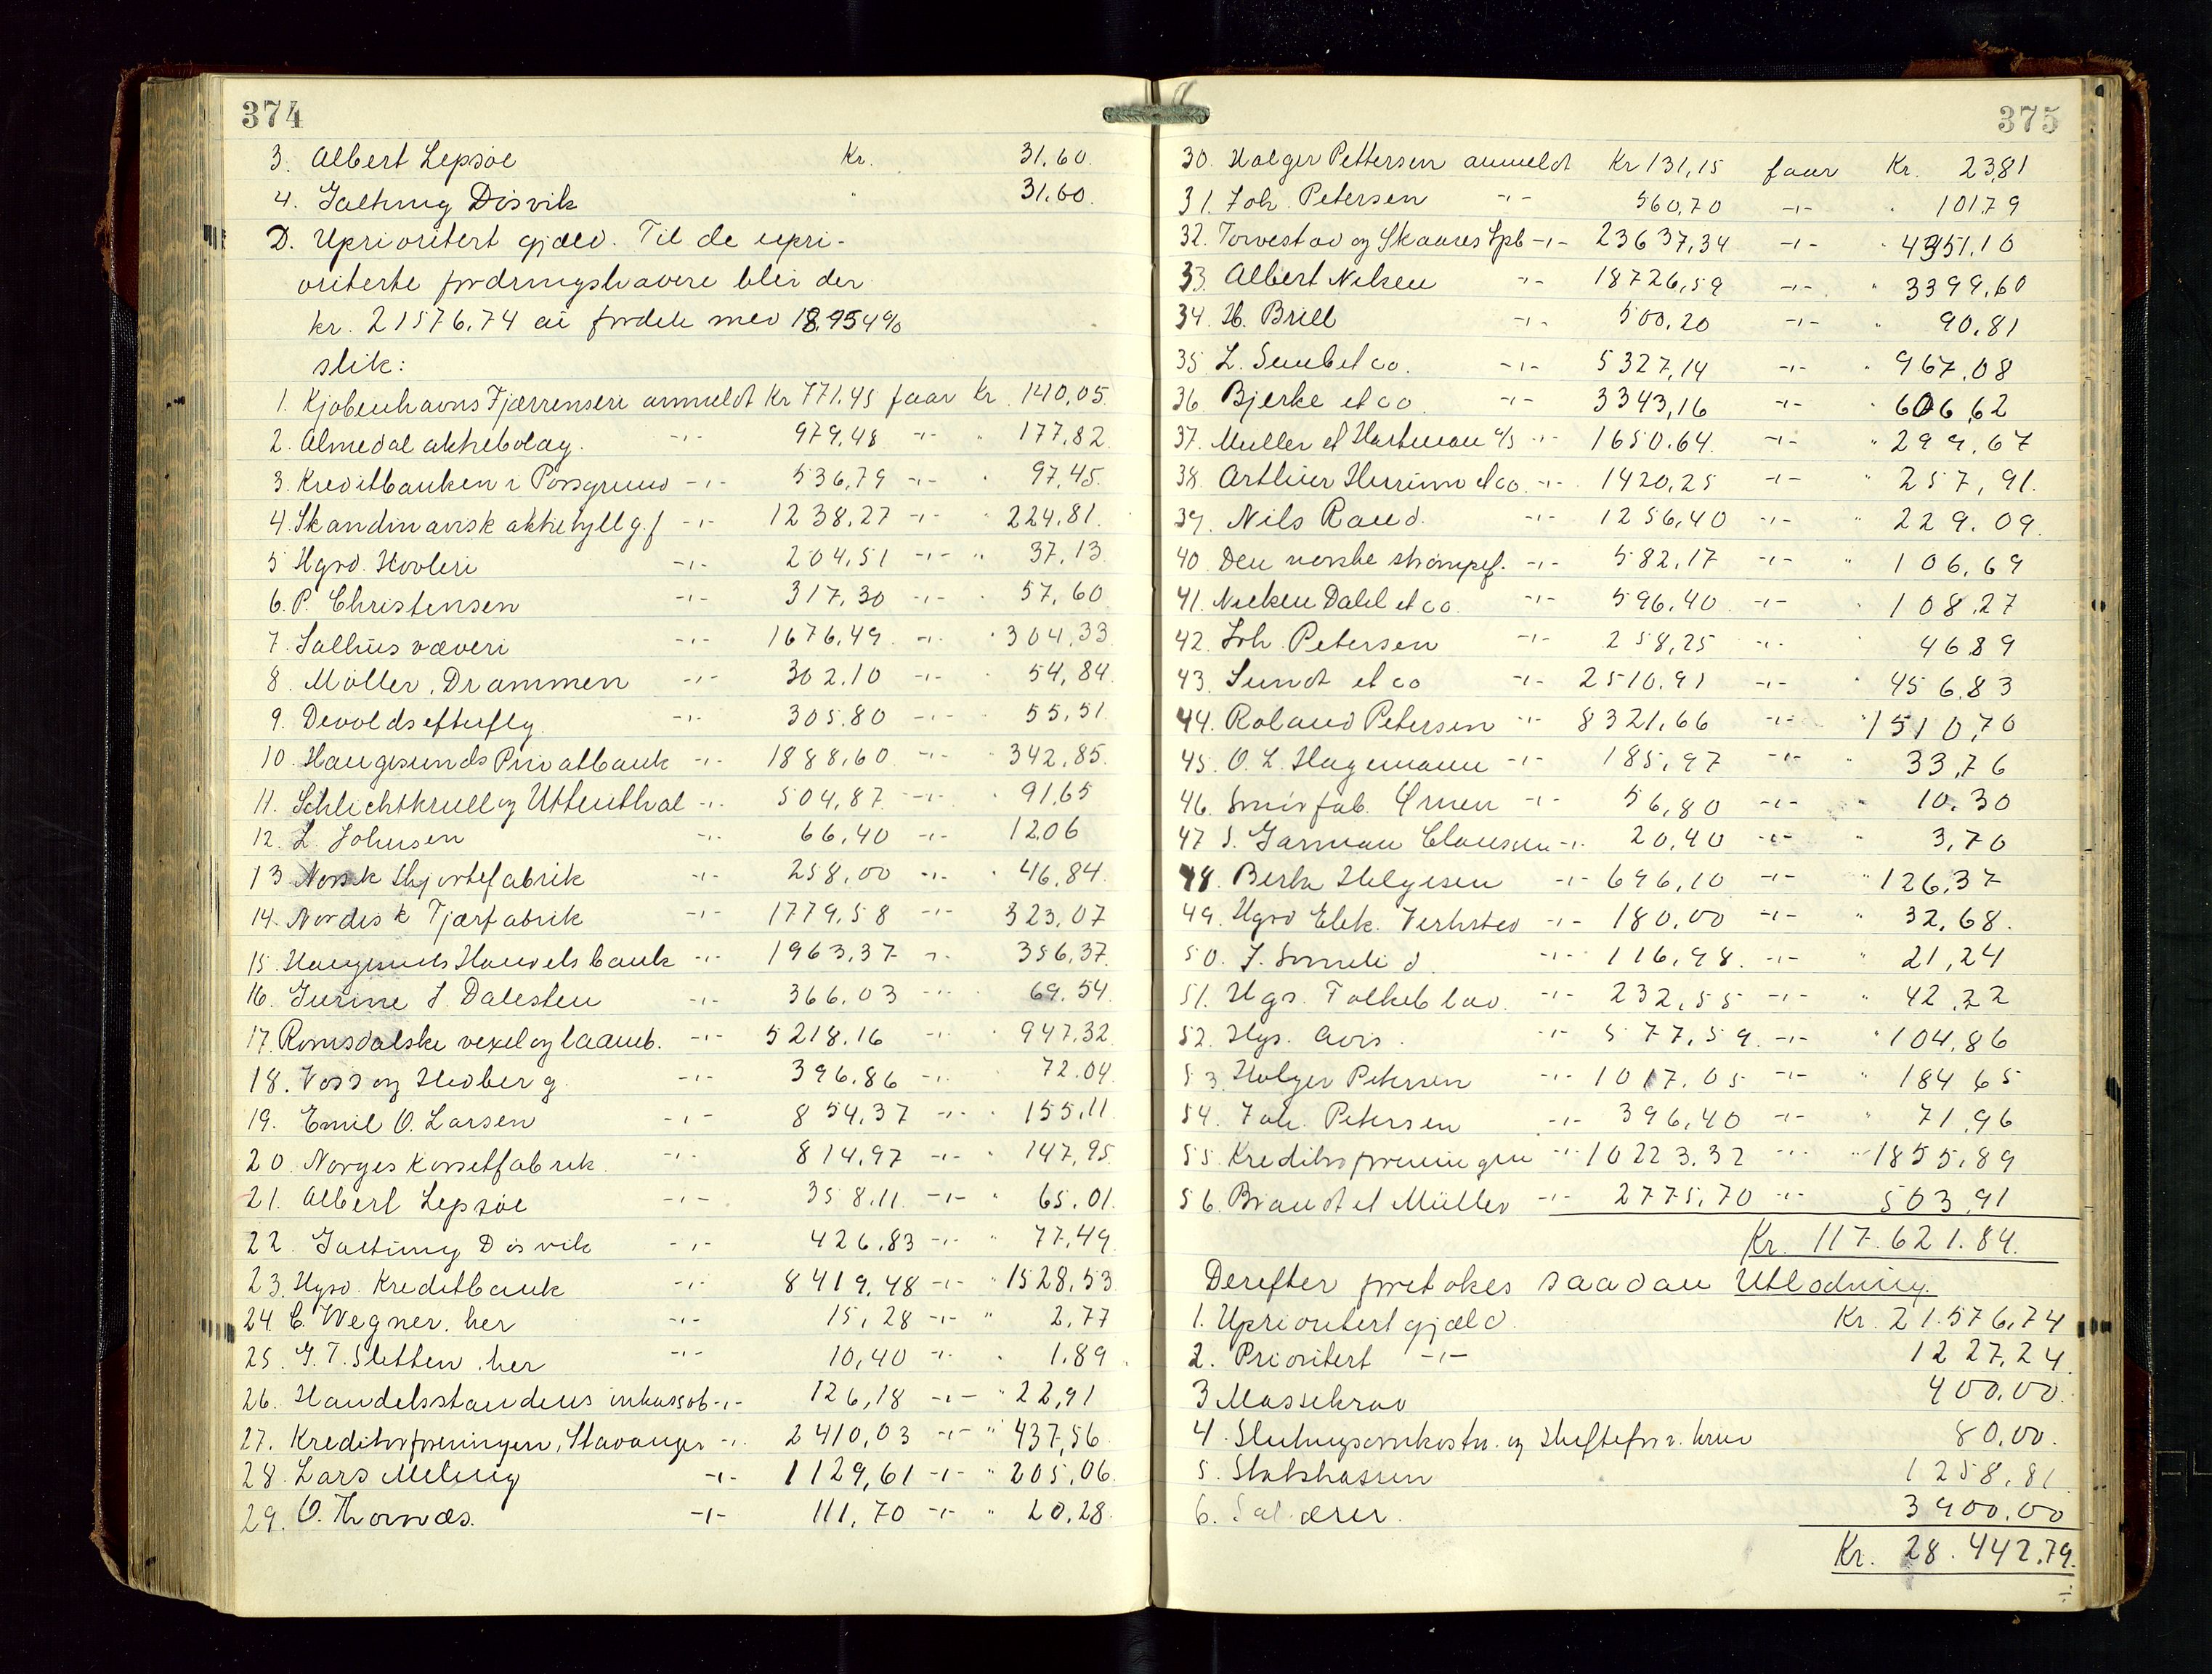 374
3. Albert Lepsøe Kr. 31.60.
4. Galtung Døsvik " 31.60.
D. Uprioritert gjæld. Til de upri-
oriterte fordringshavere blir der
kr. 21576.74 at fordele med 18,954%
slik:
1. Kjøbenhavns Fjærrenseri anmeldt Kr 771.45 faar Kr. 140,05.
2. Almedal aktiebolag. -"- 979.48 -"- " 177.82.
3. Kreditbanken i Porsgrund -"- 536,79 -"- " 97,45.
4. Skandinavisk aktietyllg.f -"- 1238.27 -"- " 224.81.
5 Hgsd. Hovleri -"- 204,51 -"- " 37.13.
6. P. Christensen -"- 317,30 -"- " 57,60
7. Salhus væveri -"- 1676,49 -"- " 304,33
8. Møller, Drammen -"- 302.10 -"- " 54,84.
9. Devolds efterflg. -"- 305.80 -"- " 55,51
10. Haugesunds Privatbank -"- 1888,60 -"- " 342,85.
11. Schlichtkrull og Uttenthal -"- 504,87 -"- " 91,65
12. L. Johnsen -"- 66,40 -"- 12.06
13 Norsk Skjortefabrik -"- 258,00 -"- " 46,84.
14. Nordisk Fjærfabrik -"- 1779,58 -"- 323,07
15. Haugesunds Handelsbank -"- 1963,37 -"- 356,37.
16. Gurine J. Dalesten -"- 366,03 -"- 69.54.
17. Romsdalske vexel og laaneb. -"- 5218.16 -"- " 947,32.
18. Voss og Hedberg. -"- 396.86 -"- " 72.04.
19. Emil O. Larsen -"- 854,37 -"- " 155,11.
20. Norges Korsetfabrik. -"- 814,97 -"- " 147,95.
21. Albert Lepsøe -"- 358.11. -"- " 65.01.
22. Galtung Døsvik -"- 426,83 -"- " 77,49.
23. Hgsd. Kreditbank -"- 8419,48 -"- " 1528,53
24. C. Wegner. her -"- 15,28 -"- " 2,77
25. G. T. Sletten. her -"- 10,40 -"- " 1.89.
26. Handelsstandens inkassob -"- 126,18 -"- " 22,91
27. Kreditorforeningen, Stavanger -"- 2410,03 -"- " 437,56.
28. Lars Meling -"- 1129,61 -"- " 205,06.
29. O. Thornæs. -"- 111,70 -"- " 20,28.
375
30. Holger Pettersen anmeldt Kr 131,15 faar Kr. 23,81
31. Joh. Petersen -"- 560,70 -"- " 101.79
32. Torvestad og Skaares Spb -"- 23637,34 -"- " 4351.10
33. Albert Nilsen -"- 18726,59 -"- " 3399,60
34. H. Brill -"- 500.20 -"- " 90,81
35. L. et co. -"- 5327,14 -"- " 967,08
36. Bjerke et co. -"- 3343,16 -"- " 606,62
37. Muller et Hartman a/s -"- 1650.64. -"- " 299,67
38. Arthur et co. -"- 1420,25 -"- " 257,91.
39. Nils Raud. -"- 1256,40 -"- " 229.09.
40. Den norske strømpef. -"- 582,17 -"- " 106,69
41. Dahl et co. -"- 596,40 -"- " 108,27
42. Joh. Petersen -"- 258,25 -"- 46.89
43. Sundt et co -"- 2510.91 -"- " 456.83
44. Roland Petersen -"- 8321,66 -"- " 1510,70
45. O. L. Hagemann -"- 185,97 -"- " 33,76
46. fab. Ørnen -"- 56,80 -"- " 10.30
47 S. Garman Clausen -"- 20,40 -"- " 3,70
48. Berta Helgesen -"- 696,10 -"- " 126,37
49. Hgsd Elek. Verksted -"- 180.00 -"- " 32,68.
50. J. -"- 116,98. -"- " 21,24
51. Hgs. Folkeblad. -"- 232,55 -"- " 42,22
52. Hgs. Avis. -"- 577,59. -"- " 104,86
53. Holger Petersen -"- 1017.05 -"- " 184,65
54. Joh. Petersen -"- 396,40 -"- " 71,96
55. Kreditorforeningen -"- 10223.32 -"- " 1855,89
56. Brandt et Müller -"- 2775,70 -"- 503,91
Kr. 117.621.84.
Derefter foretokes saadan Utlodning.
1. Uprioritert gjæld. Kr. 21.576,74
2. Prioritert -"- 1227,24.
3 Massekrav 400.00.
4. Slutningsomkostn. og skiftefor. krav 80,00.
5. Statskassen 1258,81.
6. Salærer. 3900.00
Kr. 28.442.79.